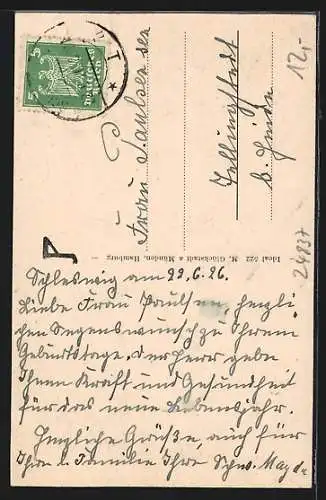 5 5
Deutsches Reich
12,-
Frau Paulsen
Tellingstedt
b. Heide
24837
Ideal 522 N. Glückstadt & Münden, Hamburg
Schleswig am 22.6.26.
Liebe Frau Paulsen, herzli-
chen Segenswunsch zu Ihrem
Geburtstage. Der Herr gebe
Ihnen Kraft und Gesundheit
für das neue Lebensjahr.
Herzliche Grüße, auch für
Ihre l. Familie Ihre Schw. Magda